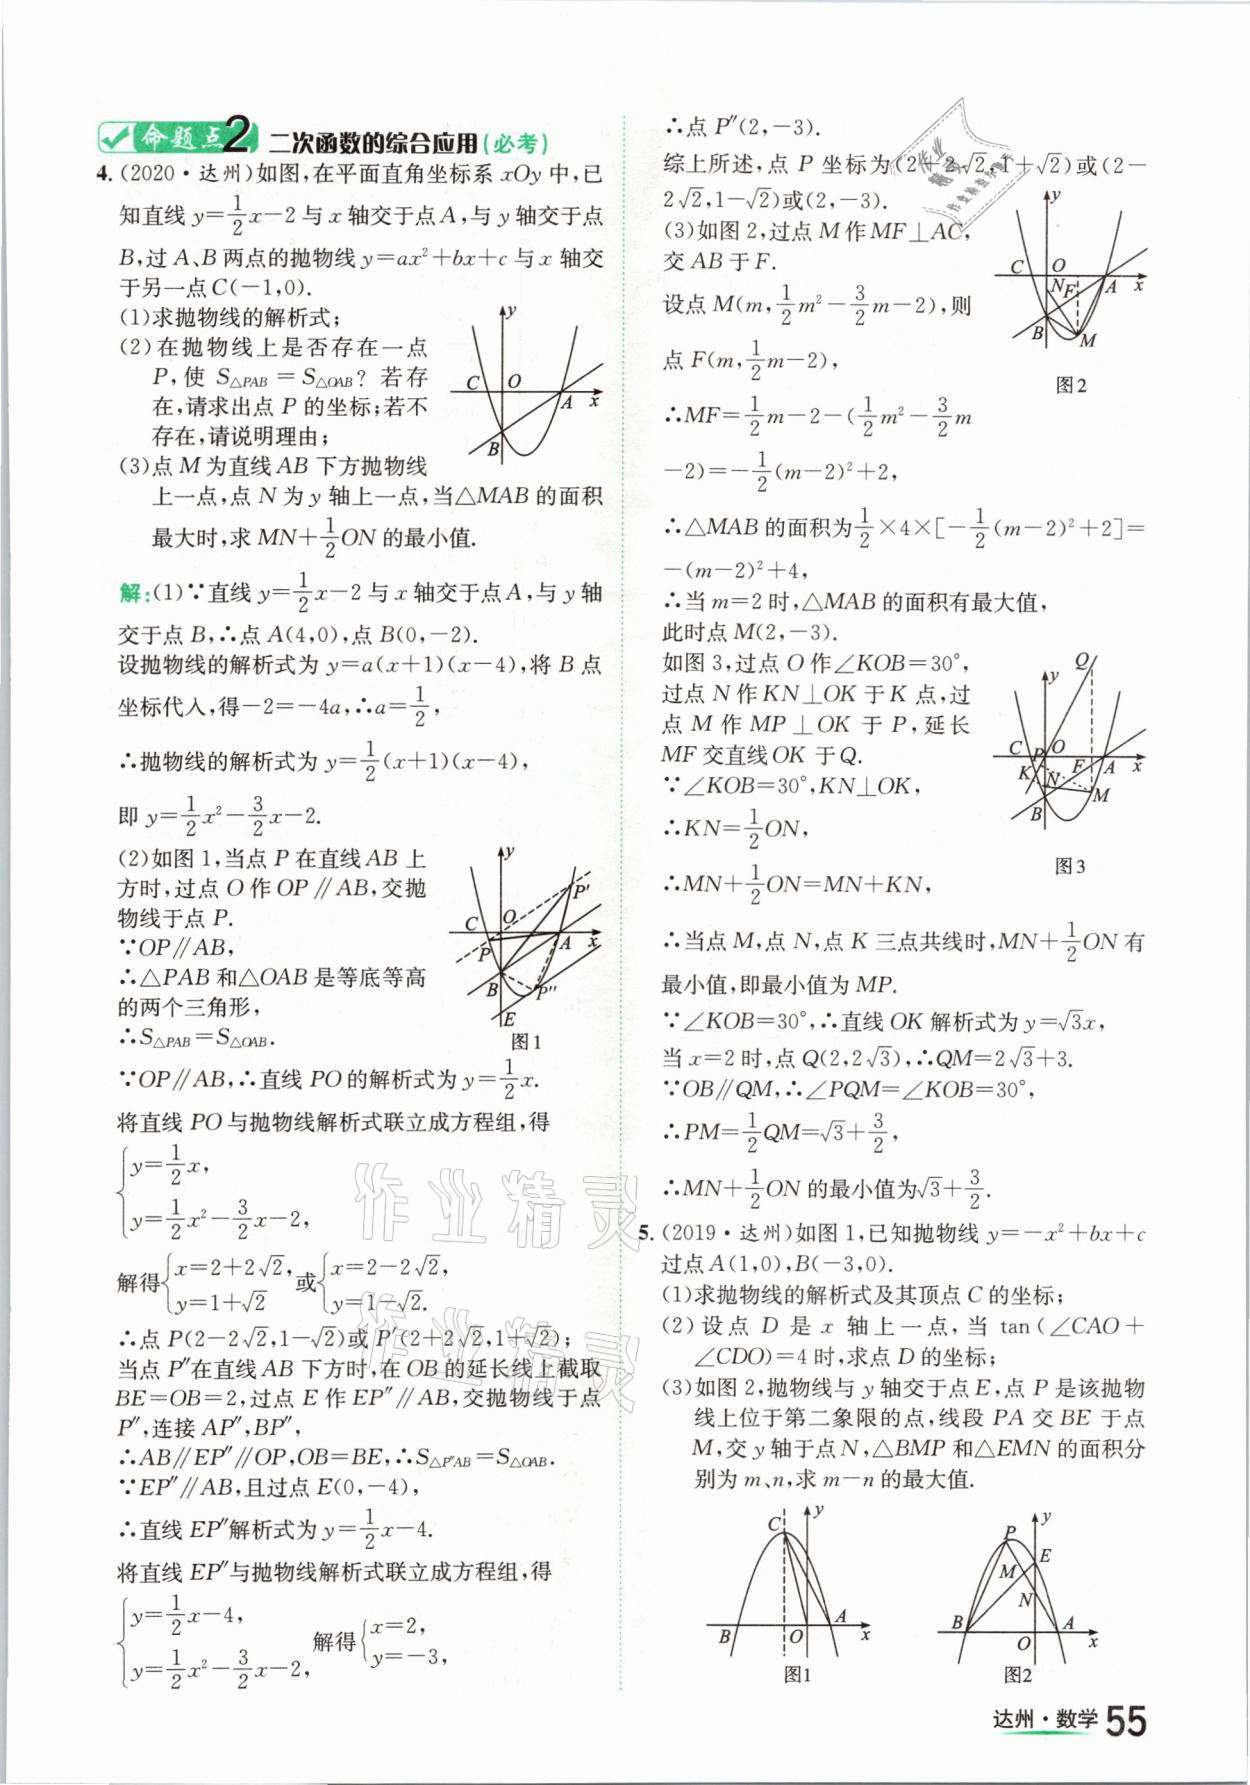 命题点2 二次函数的综合应用(必考)
4.(2020·达州)如图,在平面直角坐标系 xOy 中,已
知直线 y=1/2x-2 与 x 轴交于点 A,与 y 轴交于点
B,过 A、B 两点的抛物线 y=ax²+bx+c 与 x 轴交
于另一点 C(-1,0).
(1)求抛物线的解析式;
(2)在抛物线上是否存在一点
P,使 S△PAB=S△OAB?若存
在,请求出点 P 的坐标;若不
存在,请说明理由;
(3)点 M 为直线 AB 下方抛物线
上一点,点 N 为 y 轴上一点,当△MAB 的面积
最大时,求 MN+1/2ON 的最小值.
y
C O
A x
B
解:(1)∵直线 y=1/2x-2 与 x 轴交于点 A,与 y 轴
交于点 B,∴点 A(4,0),点 B(0,-2).
设抛物线的解析式为 y=a(x+1)(x-4),将 B 点
坐标代入,得-2=-4a,∴a=1/2,
∴抛物线的解析式为 y=1/2(x+1)(x-4),
即 y=1/2x²-3/2x-2.
(2)如图 1,当点 P 在直线 AB 上
方时,过点 O 作 OP∥AB,交抛
物线于点 P.
∵OP∥AB,
∴△PAB 和△OAB 是等底等高
的两个三角形,
∴S△PAB=S△OAB.
y
P′
C O
P A x
B P″
E
图1
∵OP∥AB,∴直线 PO 的解析式为 y=1/2x.
将直线 PO 与抛物线解析式联立成方程组,得
{y=1/2x,
y=1/2x²-3/2x-2,
解得{x=2+2√2,或{x=2-2√2,
y=1+√2 y=1-√2.
∴点 P(2-2√2,1-√2)或 P′(2+2√2,1+√2);
当点 P″在直线 AB 下方时,在 OB 的延长线上截取
BE=OB=2,过点 E 作 EP″∥AB,交抛物线于点
P″,连接 AP″,BP″,
∴AB∥EP″∥OP,OB=BE,∴S△P″AB=S△OAB.
∵EP″∥AB,且过点 E(0,-4),
∴直线 EP″解析式为 y=1/2x-4.
将直线 EP″与抛物线解析式联立成方程组,得
{y=1/2x-4,
y=1/2x²-3/2x-2, 解得{x=2,
y=-3,
∴点 P″(2,-3).
综上所述,点 P 坐标为(2+2√2,1+√2)或(2-
2√2,1-√2)或(2,-3).
(3)如图 2,过点 M 作 MF⊥AC,
交 AB 于 F.
设点 M(m,1/2m²-3/2m-2),则
点 F(m,1/2m-2),
∴MF=1/2m-2-(1/2m²-3/2m
-2)=-1/2(m-2)²+2,
y
C O
N F A x
B
M
图2
∴△MAB 的面积为1/2×4×[-1/2(m-2)²+2]=
-(m-2)²+4,
∴当 m=2 时,△MAB 的面积有最大值,
此时点 M(2,-3).
如图 3,过点 O 作∠KOB=30°,
过点 N 作 KN⊥OK 于 K 点,过
点 M 作 MP⊥OK 于 P,延长
MF 交直线 OK 于 Q.
∵∠KOB=30°,KN⊥OK,
∴KN=1/2ON,
∴MN+1/2ON=MN+KN,
y Q
C P O
K N F A x
M
B
图3
∴当点 M,点 N,点 K 三点共线时,MN+1/2ON 有
最小值,即最小值为 MP.
∵∠KOB=30°,∴直线 OK 解析式为 y=√3x,
当 x=2 时,点 Q(2,2√3),∴QM=2√3+3.
∵OB∥QM,∴∠PQM=∠KOB=30°,
∴PM=1/2QM=√3+3/2,
∴MN+1/2ON 的最小值为√3+3/2.
5.(2019·达州)如图 1,已知抛物线 y=-x²+bx+c
过点 A(1,0),B(-3,0).
(1)求抛物线的解析式及其顶点 C 的坐标;
(2)设点 D 是 x 轴上一点,当 tan(∠CAO+
∠CDO)=4 时,求点 D 的坐标;
(3)如图 2,抛物线与 y 轴交于点 E,点 P 是该抛物
线上位于第二象限的点,线段 PA 交 BE 于点
M,交 y 轴于点 N,△BMP 和△EMN 的面积分
别为 m、n,求 m-n 的最大值.
C y
B O A x
图1
P y
E
M
N
B O A x
图2
作业精灵
作业精灵
达州·数学 55